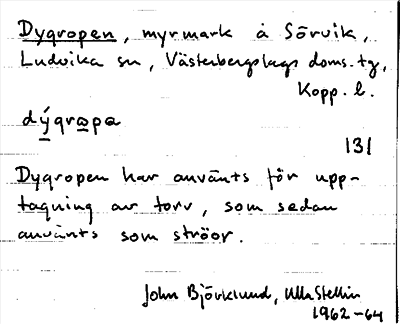 Dygropen, myrmark å Sörvik,
Ludvika sn, Västerbergslags doms. tg,
Kopp. l.
dýgropa
131
Dygropen har använts för upp-
tagning av torv, som sedan
använts som ströor.
John Björklund, Ulla Stellin
1962-64